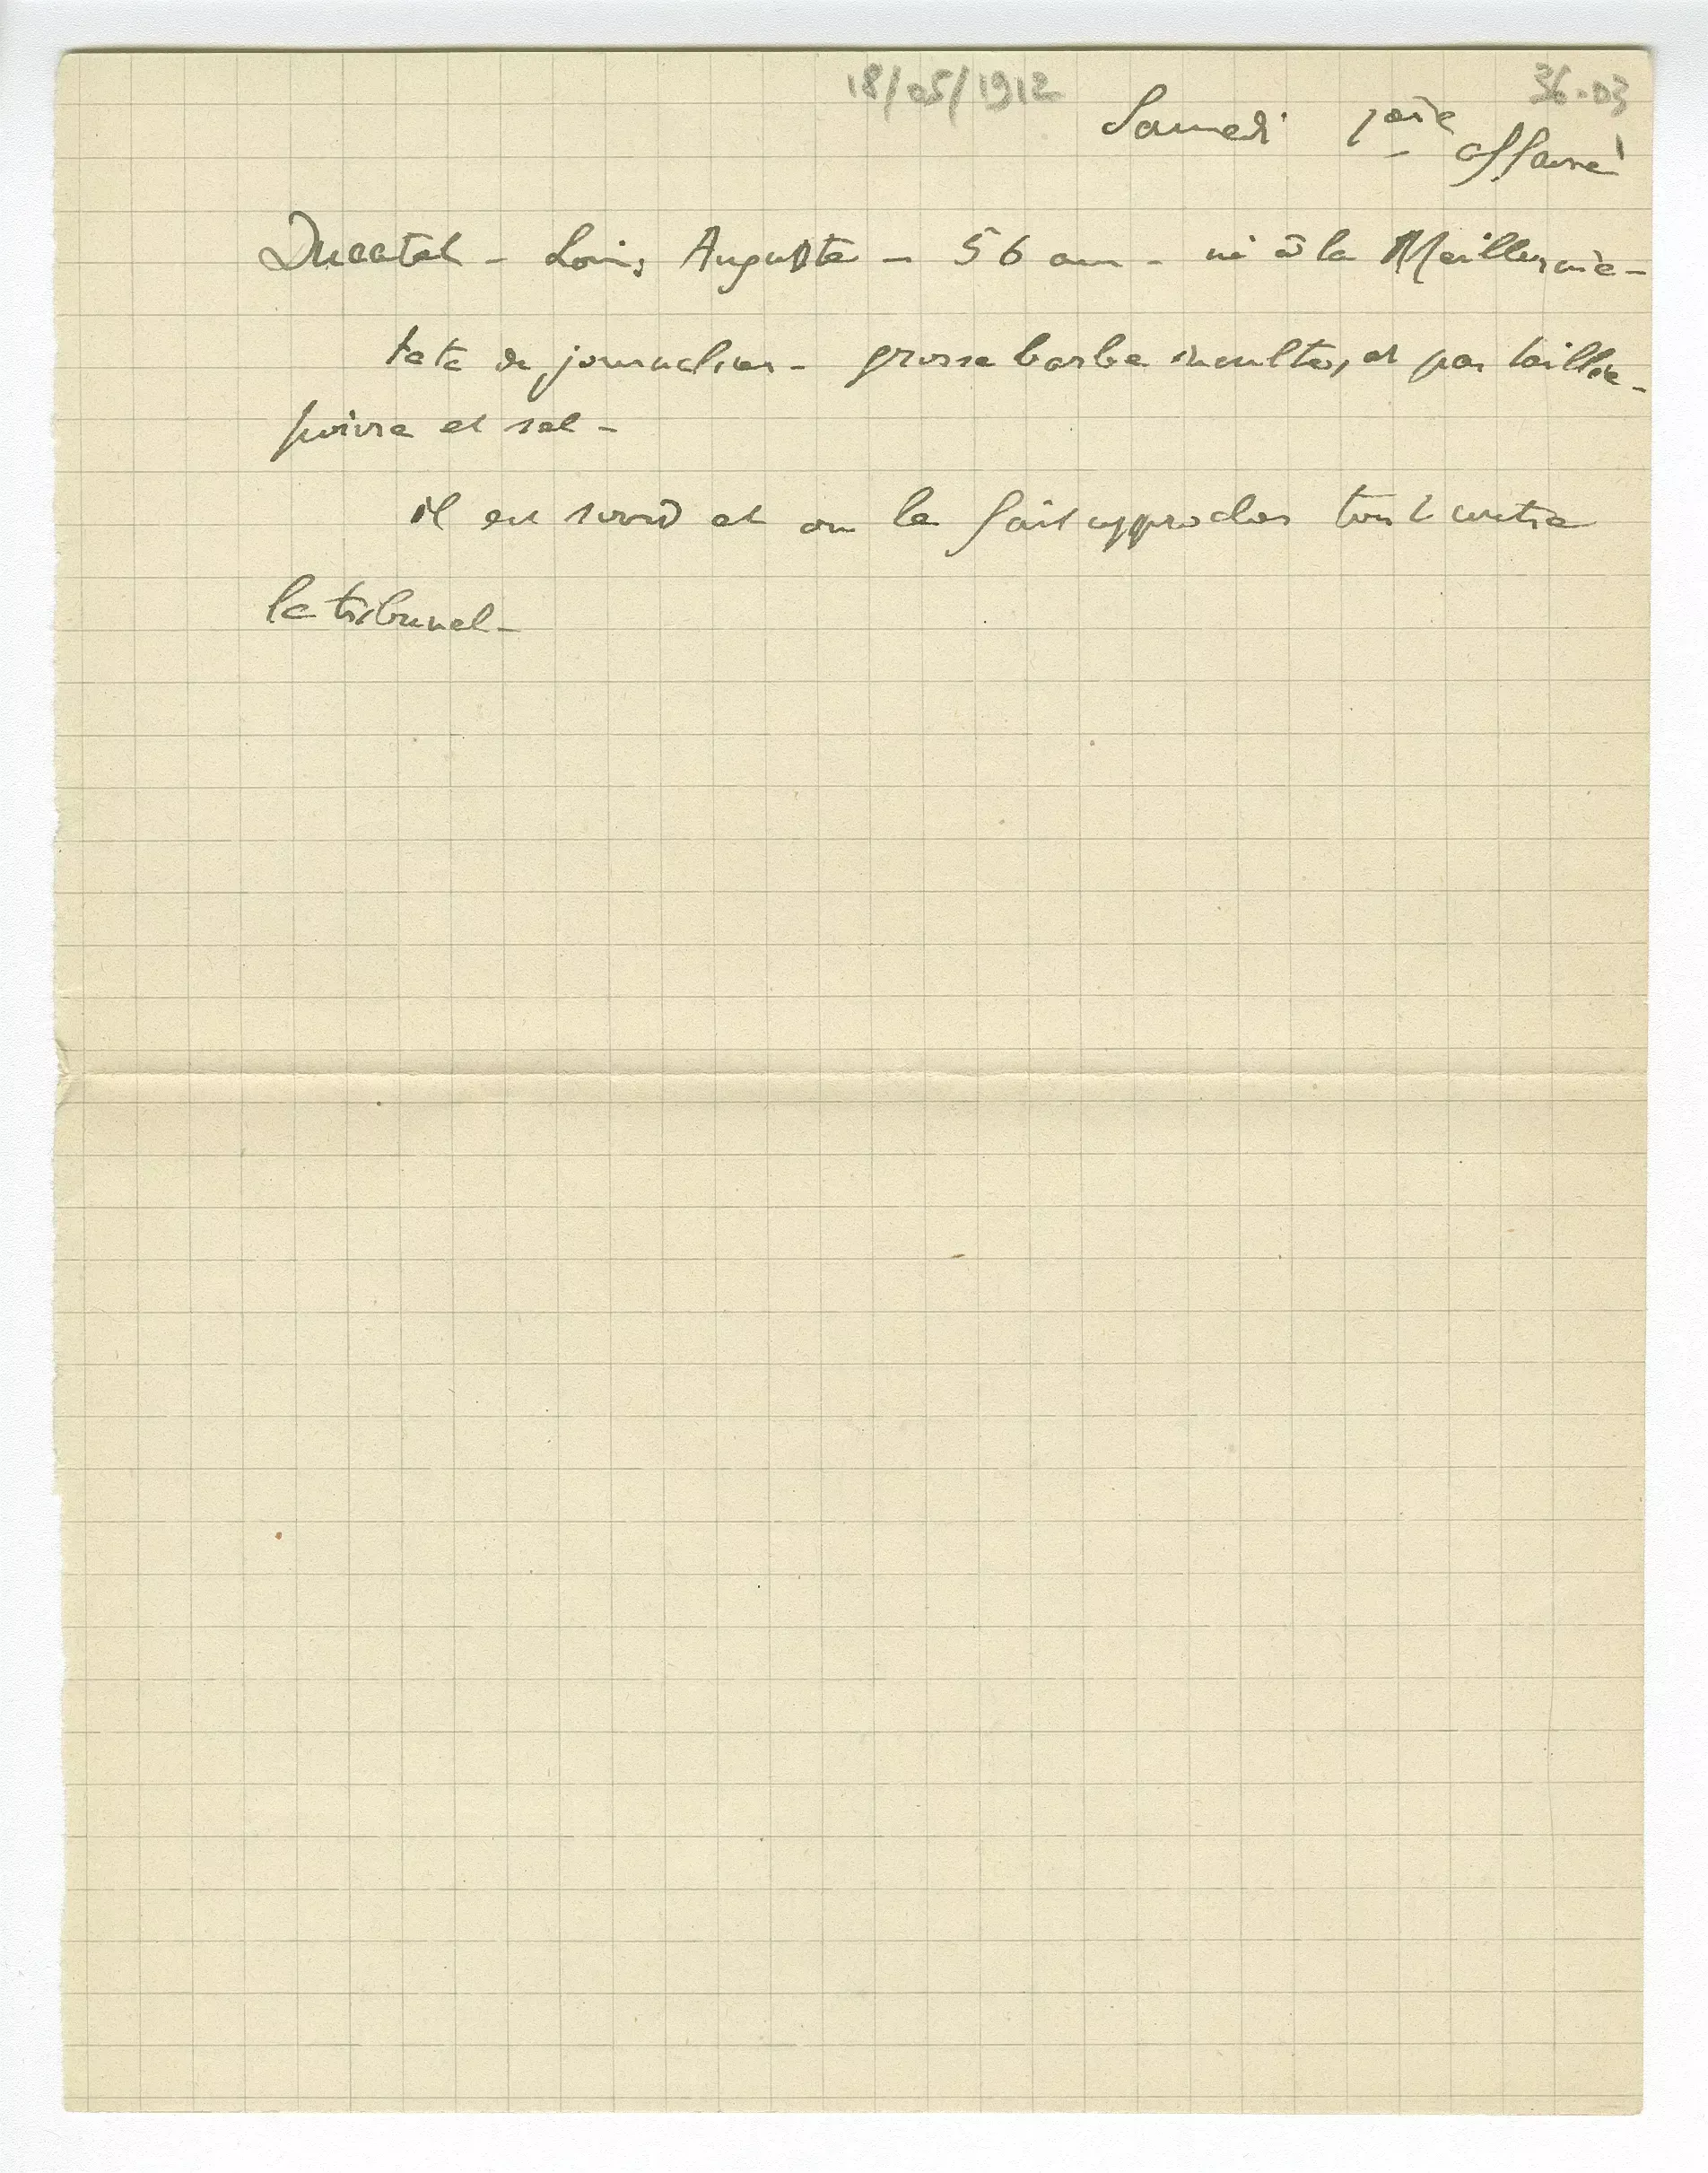 18/05/1912
36-03
Samedi 1ère
affaire
Ducatel - Louis Auguste - 56 ans - né à la Meilleraie -
tete de journalier - grosse barbe inculte, et pas taillée -
poivre et sel -
il est sourd et on le fait approcher tout contre
le tribunal -